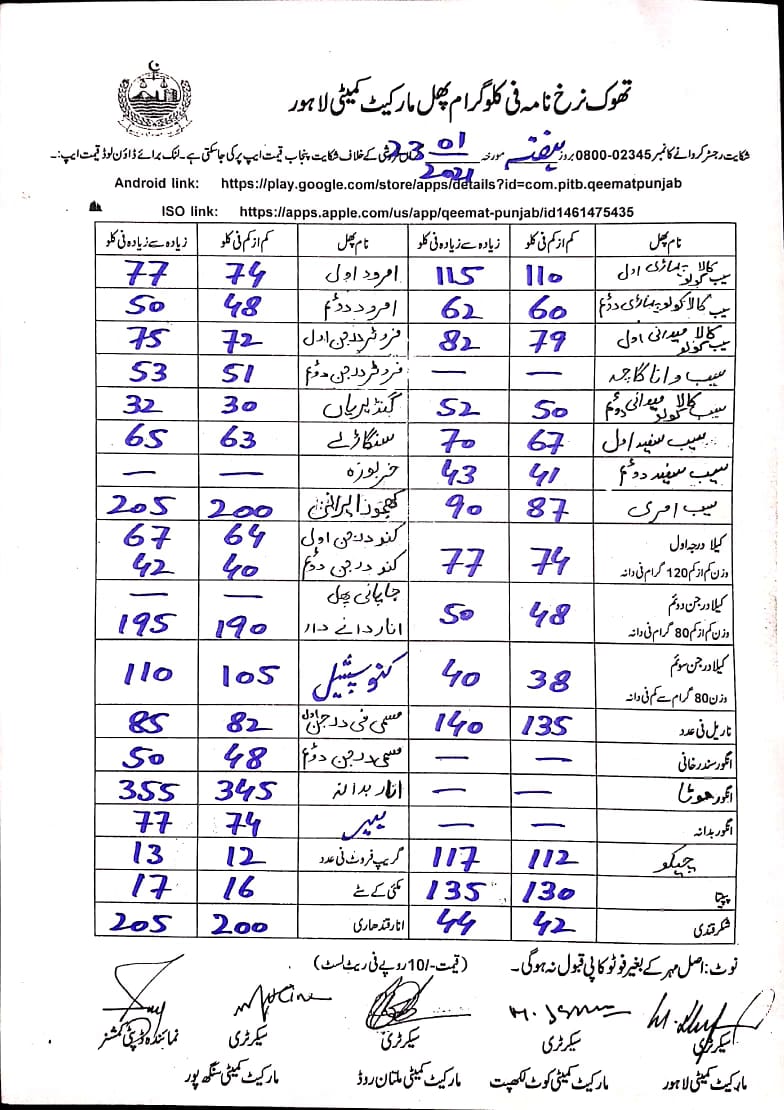 تھوک نرخ نامہ فی کلوگرام پھل مارکیٹ کمیٹی لاہور
شکایت رجسٹر کروانے کا نمبر 02345-0800 بروز ہفتہ مورخہ 23 01 2021 کے خلاف شکایت پنجاب قیمت ایپ پر کی جا سکتی ہے۔ لنک برائے ڈاؤن لوڈ قیمت ایپ:۔
Android link: https://play.google.com/store/apps/details?id=com.pitb.qeematpunjab
ISO link: https://apps.apple.com/us/app/qeemat-punjab/id1461475435
نام پھل کم از کم فی کلو زیادہ سے زیادہ فی کلو نام پھل کم از کم فی کلو زیادہ سے زیادہ فی کلو
سیب کالا کولو پہاڑی اول 110 115 امرود اول 74 77
سیب کالا کولو پہاڑی دوئم 60 62 امرود دوئم 48 50
سیب کالا کولو میدانی اول 79 82 فروٹر درجن اول 72 75
سیب وانا گاچہ — — فروٹر درجن دوئم 51 53
سیب کالا کولو میدانی دوئم 50 52 گنڈیریاں 30 32
سیب سفید اول 67 70 سنگاڑے 63 65
سیب سفید دوئم 41 43 خربوزہ — —
سیب امری 87 90 کھجور ایرانی 200 205
کیلا درجہ اول وزن کم از کم 120 گرام فی دانہ 74 77 کنو درجن اول 64 67
کنو درجن دوئم 40 42
کیلا درجن دوئم وزن کم از کم 80 گرام فی دانہ 48 50 جاپانی پھل — —
انار دانے دار 190 195
کیلا درجن سوئم وزن 80 گرام سے کم فی دانہ 38 40 کنو سپیشل 105 110
ناریل فی عدد 135 140 مسمی فی درجن اول 82 85
انگور سندرخانی — — مسمی درجن دوئم 48 50
انگور موٹا — — انار بدانہ 345 355
انگور بدانہ — — بیر 74 77
چیکو 112 117 گریپ فروٹ فی عدد 12 13
پپیتا 130 135 مکئی کے سٹے 16 17
شکرقندی 42 44 انار قندھاری 200 205
نوٹ: اصل مہر کے بغیر فوٹو کاپی قبول نہ ہوگی۔ (قیمت -/10 روپے فی ریٹ لسٹ)
سیکرٹری سیکرٹری سیکرٹری سیکرٹری نمائندہ ڈپٹی کمشنر
مارکیٹ کمیٹی لاہور مارکیٹ کمیٹی کوٹ لکھپت مارکیٹ کمیٹی ملتان روڈ مارکیٹ کمیٹی سنگھ پور